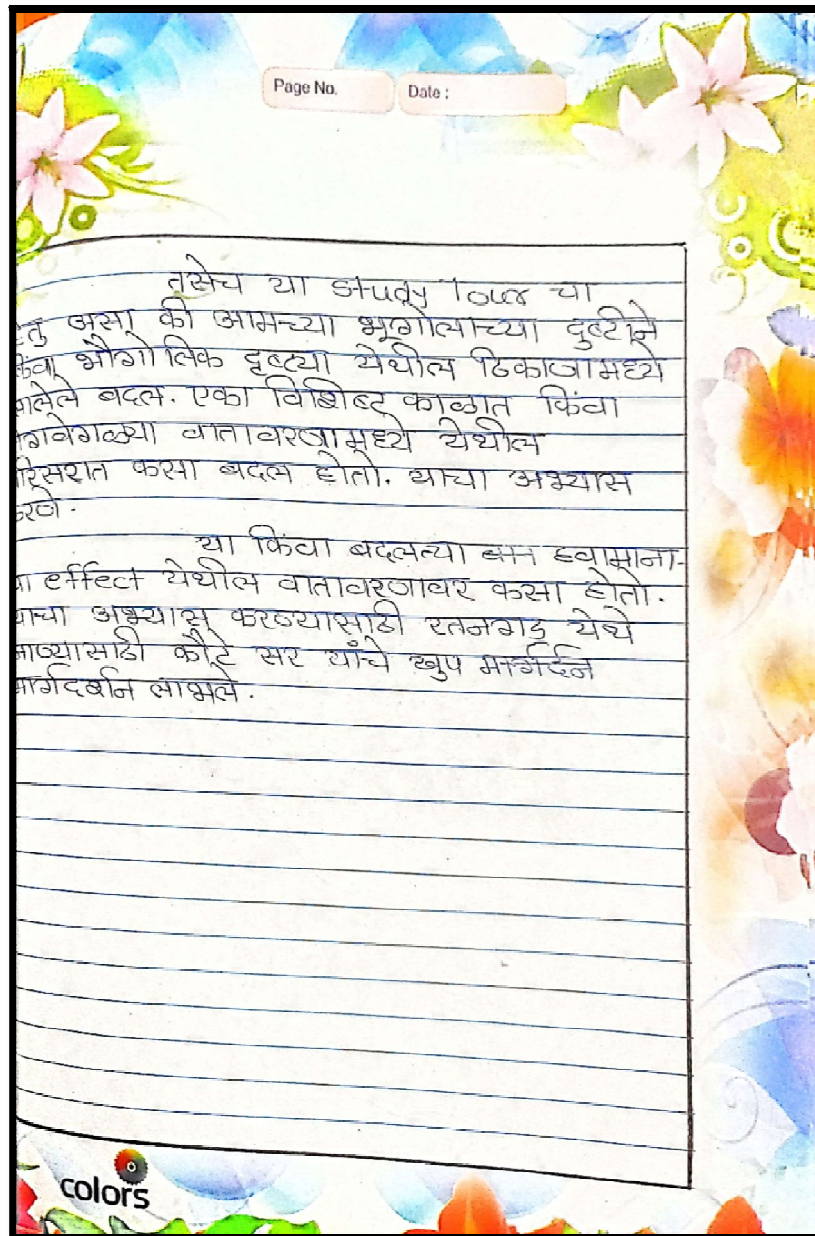 Page No.
Date :
तसेच या study Tour चा
हेतु असा की आमच्या भूगोलाच्या दृष्टीने
किंवा भौगोलिक दृष्ट्या येथील ठिकाणामध्ये
झालेले बदल. एका विशिष्ट काळात किंवा
वेगवेगळ्या वातावरणामध्ये येथील
परिसरात कसा बदल होतो. याचा अभ्यास
करणे.
या किंवा बदलत्या हवामाना-
चा effect येथील वातावरणावर कसा होतो.
याचा अभ्यास करण्यासाठी रतनगड येथे
जाण्यासाठी कोटे सर यांचे खुप मार्गर्दन
मार्गदर्शन लाभले.
colors